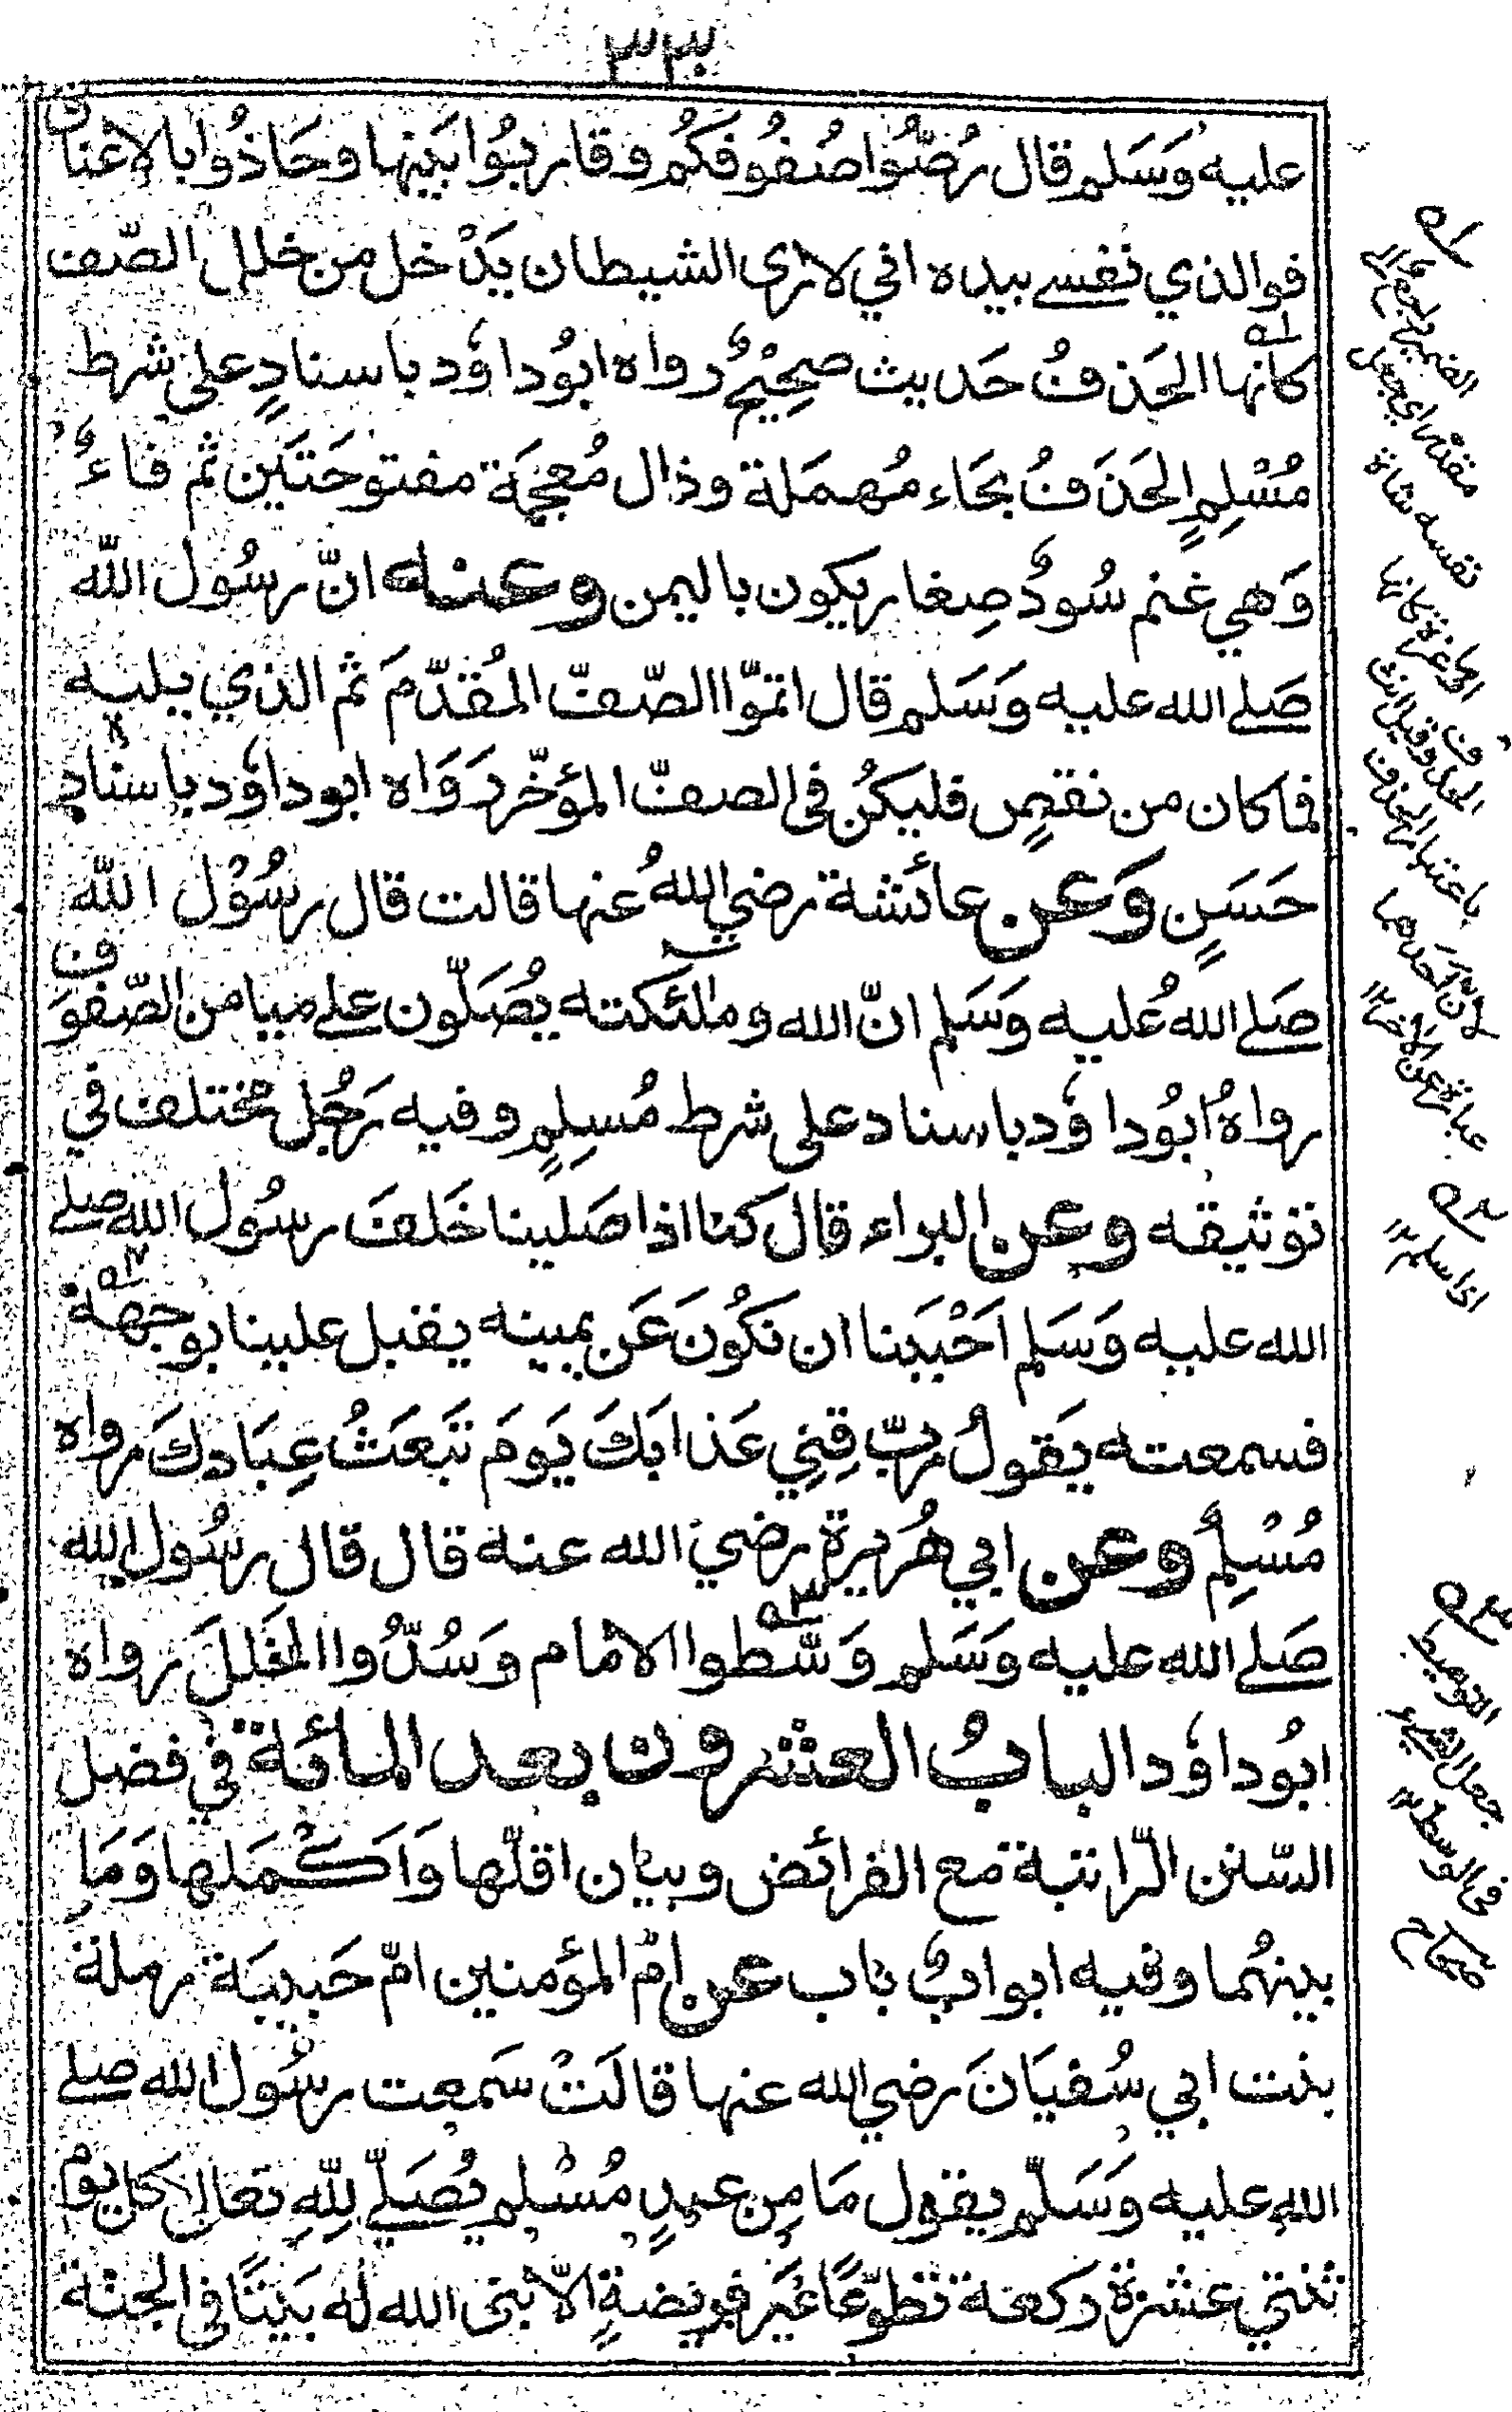 ٣٣٠
عليه وَسَلم قال رُصُّوا صُفُوفَكُم وقاربُوا بَينها وحَاذُوا بالاعْناق
فوالذي نفسے بيده اني لارى الشيطان يَدْخل من خلل الصّف
كانها الحَذفُ حَديث صَحِيْحٌ رواه ابُوداوٗد باسنادٍ على شرط
مُسْلِمٍ الحَذَفُ بحَاء مُهمَلة وذال مُعجَمَة مفتوحَتَين ثم فاءٌ
وَهي غنم سُودٌ صِغار يكون باليمن وعنه انّ رسُول اللّه
صَلے الله عليه وَسَلم قال اتمّوا الصّفّ المُقدّمَ ثم الذي يليه
فما كان من نقصٍ فليكُن فى الصفّ المؤخّر رَوَاه ابوداوٗد باسنادٍ
حَسَنٍ وَعن عائشة رضي اللهُ عنها قالت قال رسُوْل اللّه
صَلے اللهُ عليه وَسَلم انّ الله وملٰئكته يُصَلّون علے ميامن الصّفوف
رواهُ ابُوداوٗد باسناد على شرط مُسلِمٍ وفيه رَجُل مختلف في
توثيقه وعن البراء قال كنا اذا صَلينا خَلفَ رسُول الله صلے
الله عليه وَسَلم اَحْبَبنا ان نكُونَ عَن يمينه يقبل علينا بوجهة
فسمعته يَقولُ ربّ قِنِي عَذابَكَ يَومَ تَبعَثُ عِبَادِكَ رواه
مُسْلِمٌ وعن ابي هُريرة رضي الله عنة قال قال رسُول الله
صَلے الله عليه وَسَلم وَسَّطوا الامام وَسُدُّوا الخَللَ رواه
ابُوداوٗد البابُ العشرون بعد المائة في فضل
السّنن الرّاتبة مع الفرائض وبيان اقلّها وَاَكْمَلها وَمَا
بينهُما وفيه ابوابٌ باب عن امّ المؤمنين امّ حَبيبَة رملة
بنت ابي سُفيَانَ رضي الله عنها قالَتْ سَمعت رسُول الله صلے
اللهِ عليه وَسَلّم يقول مَا مِن عبدٍ مُسْلم يُصَلّي لِلّٰهِ تعالى كل يوم
ثنتي عشرة ركعة تطوّعًا غَير فريضةٍ الاّ بنى الله له بَيتًا في الجنة
التوسيط
جعل الشئ
في الوسط